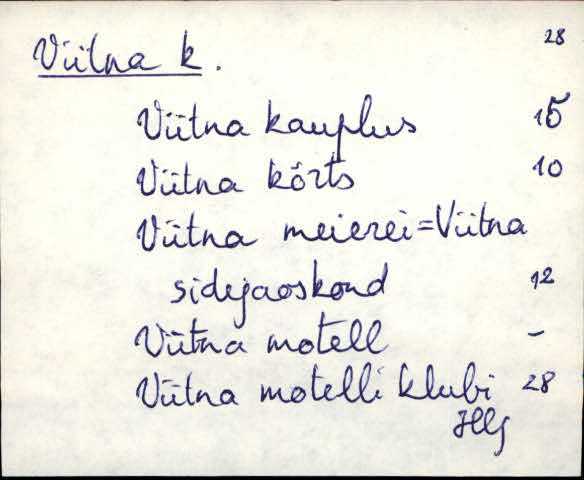 Viitna k. 28
Viitna kauplus 15
Viitna kõrts 10
Viitna meierei=Viitna
sidejaoskond 12
Viitna motell -
Viitna motelli klubi 28